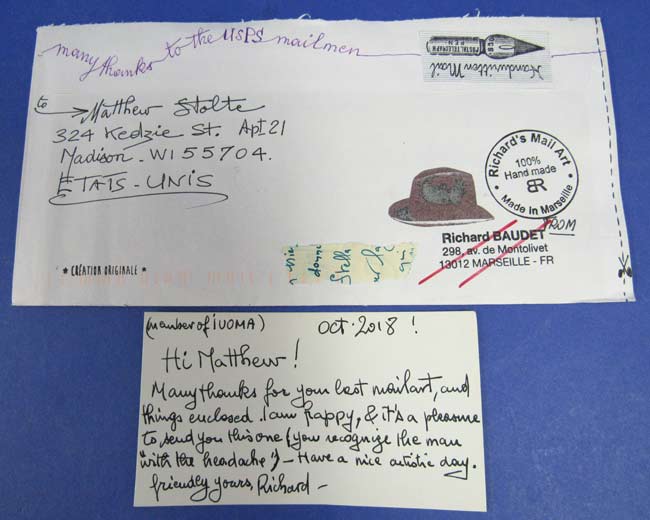 many thanks to the USPS mailmen
1850
POSTAL TELEGRAPH
PEN
Handwritten Mail
to
Matthew Stolte
324 Kedzie St. Apt 21
Madison - WI 55704.
ETATS-UNIS
Richard's Mail Art
100%
Hand made
BR
Made in Marseille
FROM
Richard BAUDET
298, av. de Montolivet
13012 MARSEILLE - FR
donne
Stella
* CRÉATION ORIGINALE *
(member of IUOMA) Oct. 2018 !
Hi Matthew !
Many thanks for your last mailart, and
things enclosed. I am happy, & it's a pleasure
to send you this one (you recognize the man
"with the headache") - Have a nice artistic day.
friendly yours, Richard -